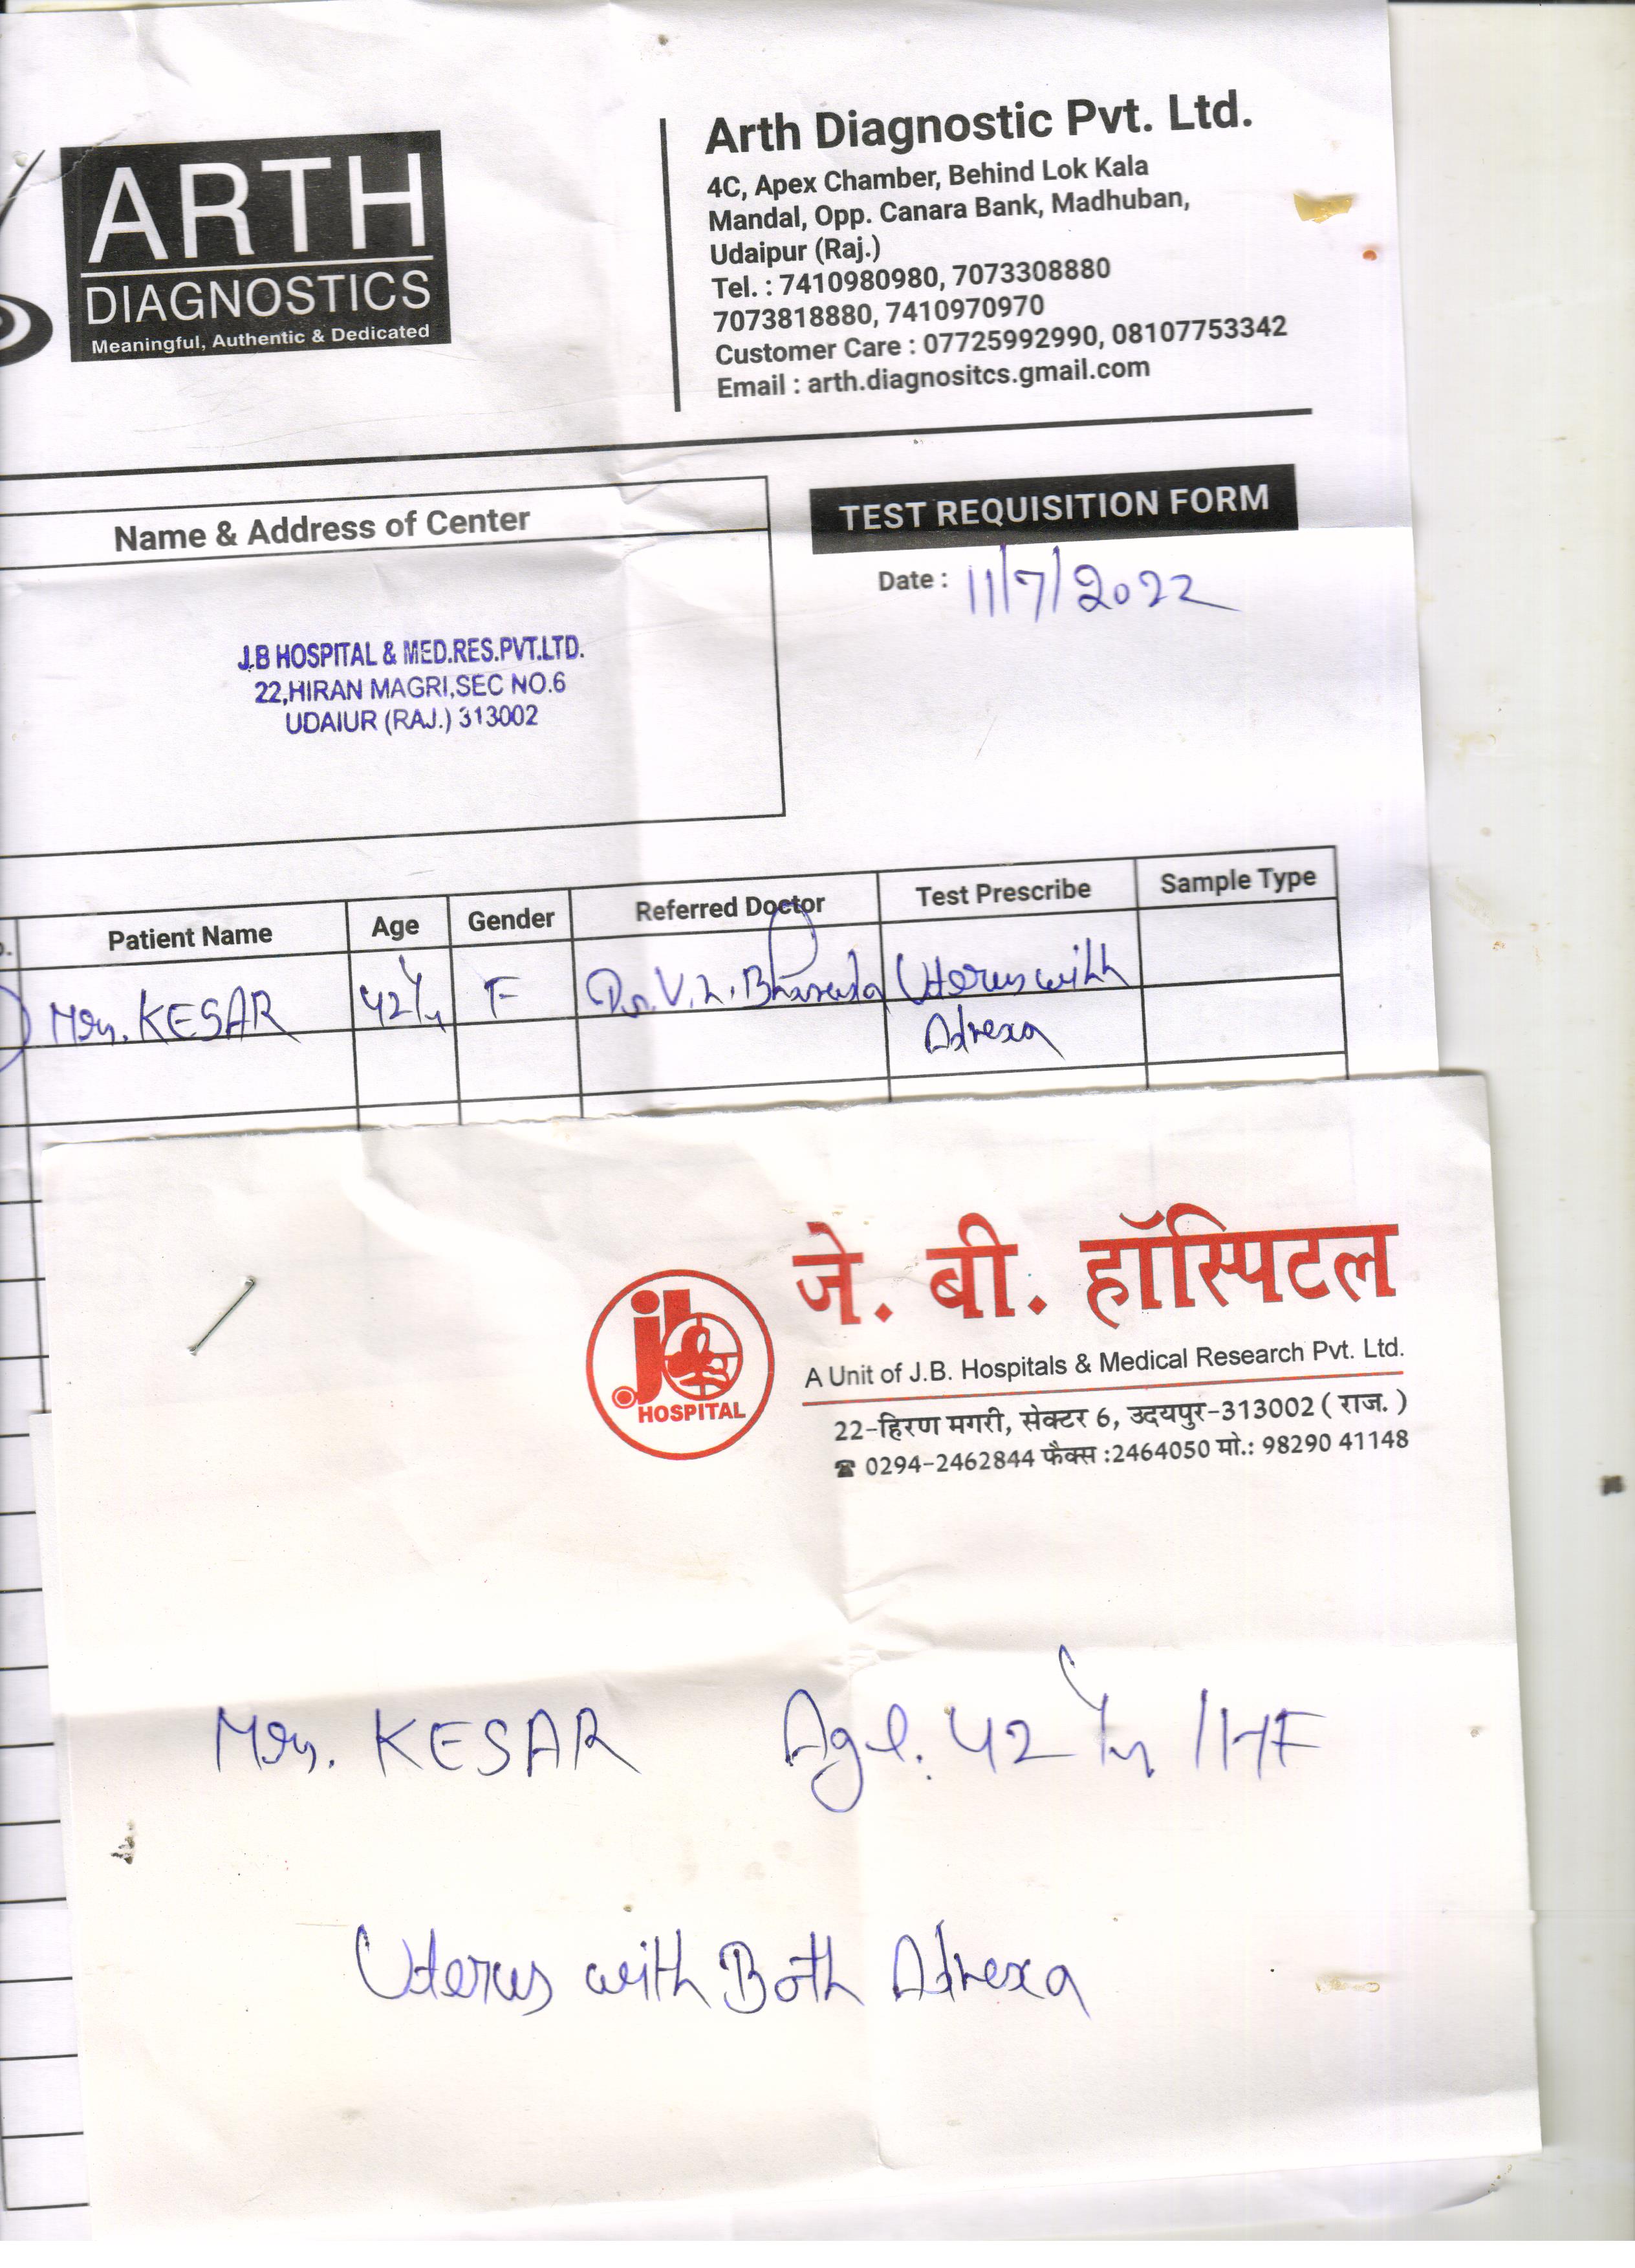 ARTH
DIAGNOSTICS
Meaningful, Authentic & Dedicated
Arth Diagnostic Pvt. Ltd.
4C, Apex Chamber, Behind Lok Kala
Mandal, Opp. Canara Bank, Madhuban,
Udaipur (Raj.)
Tel. : 7410980980, 7073308880
7073818880, 7410970970
Customer Care : 07725992990, 08107753342
Email : arth.diagnositcs.gmail.com
Name & Address of Center
TEST REQUISITION FORM
Date : 11/7/2022
J.B HOSPITAL & MED.RES.PVT.LTD.
22,HIRAN MAGRI,SEC NO.6
UDAIUR (RAJ.) 313002
Patient Name Age Gender Referred Doctor Test Prescribe Sample Type
Mrs. KESAR 42 Yr F Dr. V. L. Uterus with
Adnexa
jb
HOSPITAL
जे. बी. हॉस्पिटल
A Unit of J.B. Hospitals & Medical Research Pvt. Ltd.
22-हिरण मगरी, सेक्टर 6, उदयपुर-313002 ( राज. )
☎ 0294-2462844 फैक्स :2464050 मो.: 98290 41148
Mrs. KESAR Age. 42 Yr
Uterus with Both Adnexa